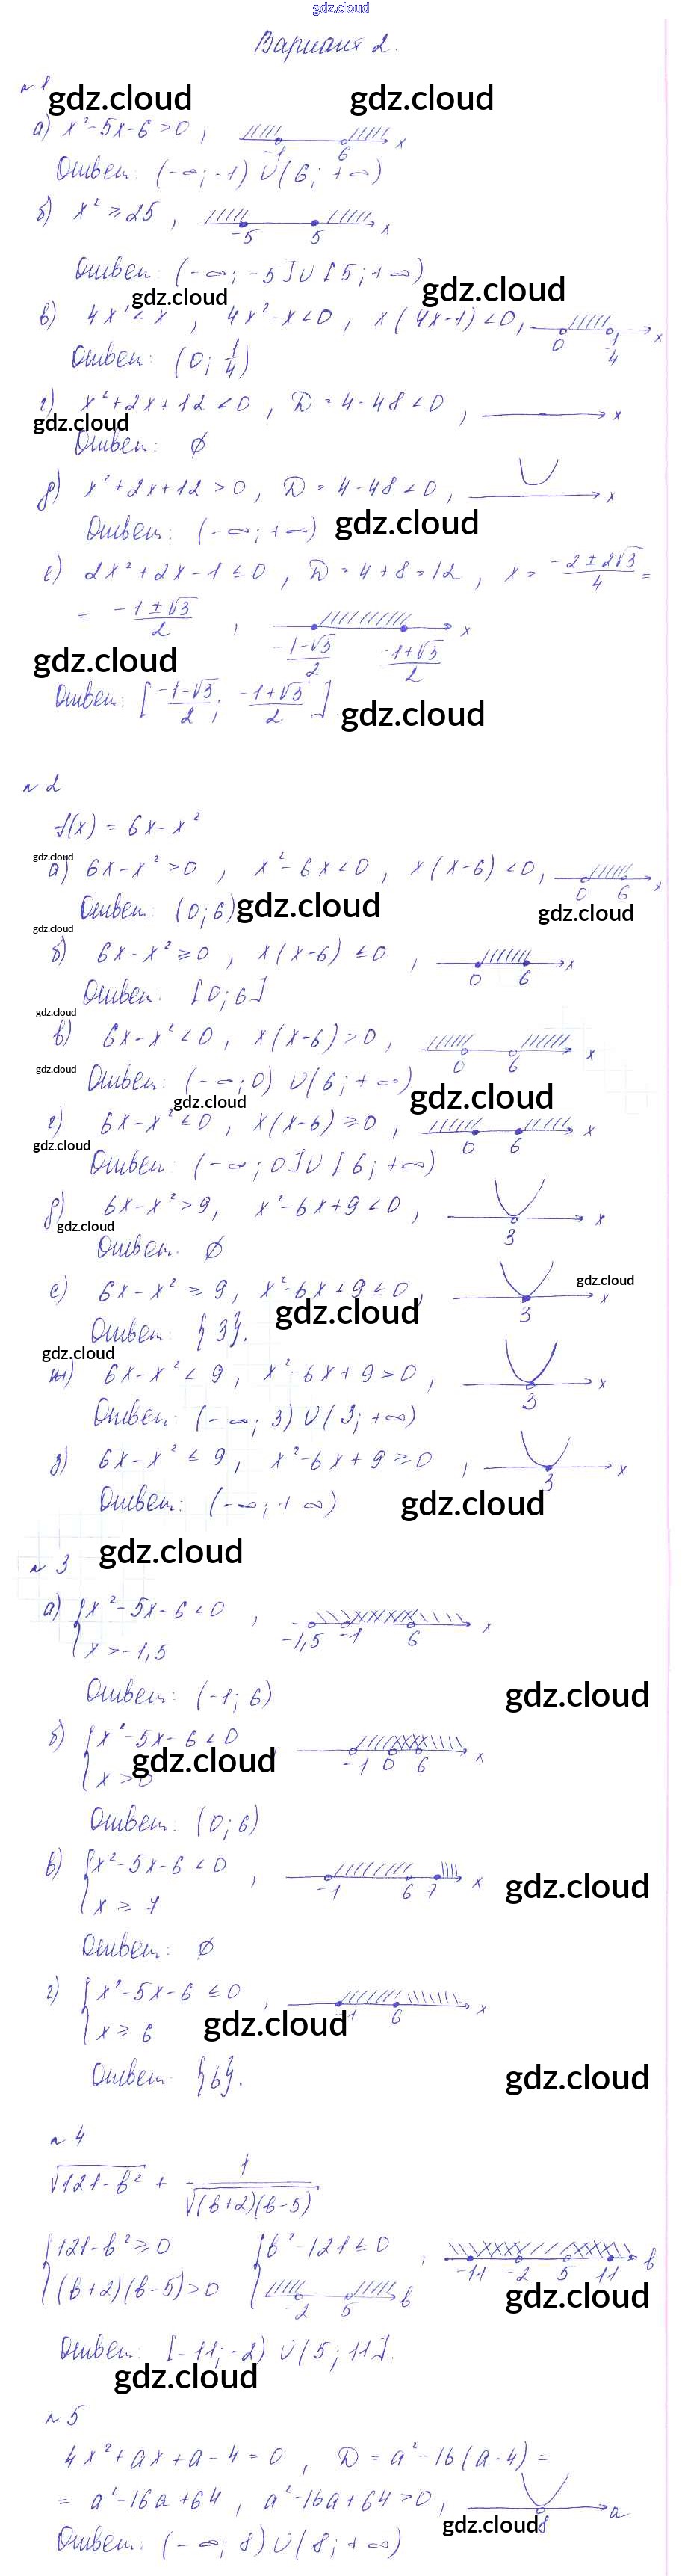 gdz.cloud
Вариант 2.
№1
gdz.cloud gdz.cloud
а) x²-5x-6>0, -1 6 x
Ответ: (-∞;-1)∪(6;+∞)
б) x²≥25, -5 5 x
Ответ: (-∞;-5]∪[5;+∞)
gdz.cloud gdz.cloud
в) 4x²<x, 4x²-x<0, x(4x-1)<0, 0 1/4 x
Ответ: (0; 1/4)
г) x²+2x+12<0, D=4-48<0, x
gdz.cloud
Ответ: ∅
д) x²+2x+12>0, D=4-48<0, x
Ответ: (-∞;+∞) gdz.cloud
е) 2x²+2x-1≤0, D=4+8=12, x=(-2±2√3)/4=
=(-1±√3)/2, (-1-√3)/2 (-1+√3)/2 x
gdz.cloud
Ответ: [(-1-√3)/2; (-1+√3)/2] gdz.cloud
№2
f(x)=6x-x²
gdz.cloud
а) 6x-x²>0, x²-6x<0, x(x-6)<0, 0 6 x
Ответ: (0;6) gdz.cloud gdz.cloud
gdz.cloud
б) 6x-x²≥0, x(x-6)≤0, 0 6 x
Ответ: [0;6]
gdz.cloud
в) 6x-x²<0, x(x-6)>0, 0 6 x
gdz.cloud
Ответ: (-∞;0)∪(6;+∞)
gdz.cloud gdz.cloud
г) 6x-x²≤0, x(x-6)≥0, 0 6 x
gdz.cloud
Ответ: (-∞;0]∪[6;+∞)
д) 6x-x²>9, x²-6x+9<0, 3 x
gdz.cloud
Ответ: ∅
е) 6x-x²≥9, x²-6x+9≤0, 3 x
gdz.cloud gdz.cloud
Ответ: {3}.
gdz.cloud
ж) 6x-x²<9, x²-6x+9>0, 3 x
Ответ: (-∞;3)∪(3;+∞)
з) 6x-x²≤9, x²-6x+9≥0, 3 x
Ответ: (-∞;+∞) gdz.cloud
gdz.cloud
№3
а) {x²-5x-6<0, -1,5 -1 6 x
x>-1,5
Ответ: (-1;6) gdz.cloud
б) {x²-5x-6<0 -1 0 6 x
gdz.cloud
x>0
Ответ: (0;6)
в) {x²-5x-6<0, -1 6 7 x
gdz.cloud
x≥7
Ответ: ∅
г) {x²-5x-6≤0, -1 6 x
x≥6 gdz.cloud
Ответ: {6}. gdz.cloud
№4
√(121-b²) + 1/√((b+2)(b-5))
{121-b²≥0 {b²-121≤0, -11 -2 5 11 b
(b+2)(b-5)>0 -2 5 b gdz.cloud
Ответ: [-11;-2)∪(5;11].
gdz.cloud
№5
4x²+ax+a-4=0, D=a²-16(a-4)=
=a²-16a+64, a²-16a+64>0, 8 a
gdz.cloud
Ответ: (-∞;8)∪(8;+∞)